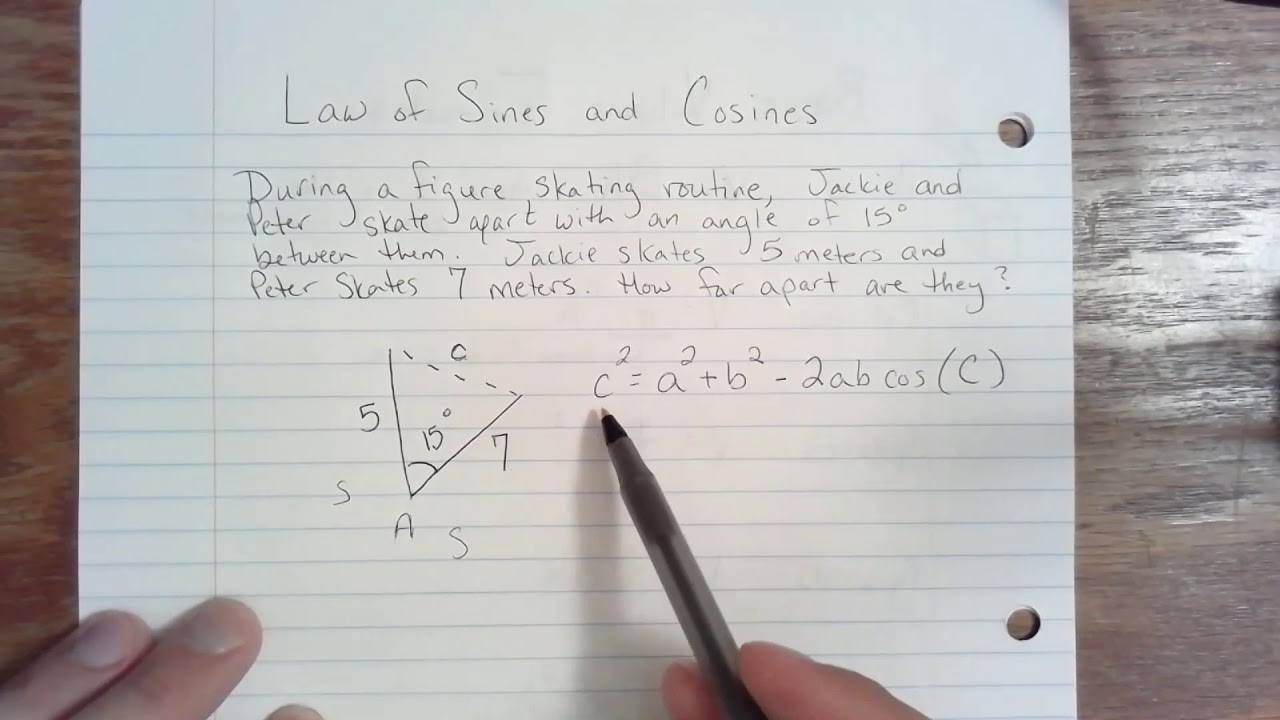 Law of Sines and Cosines
During a figure skating routine, Jackie and
Peter skate apart with an angle of 15°
between them. Jackie skates 5 meters and
Peter Skates 7 meters. How far apart are they?
c
c² = a² + b² - 2ab cos(C)
5
15°
7
S
A
S